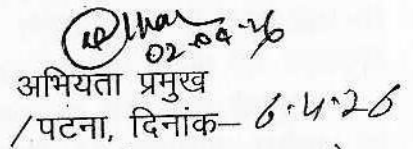 02-04-26
अभियता प्रमुख
/पटना, दिनांक– 6.4.26